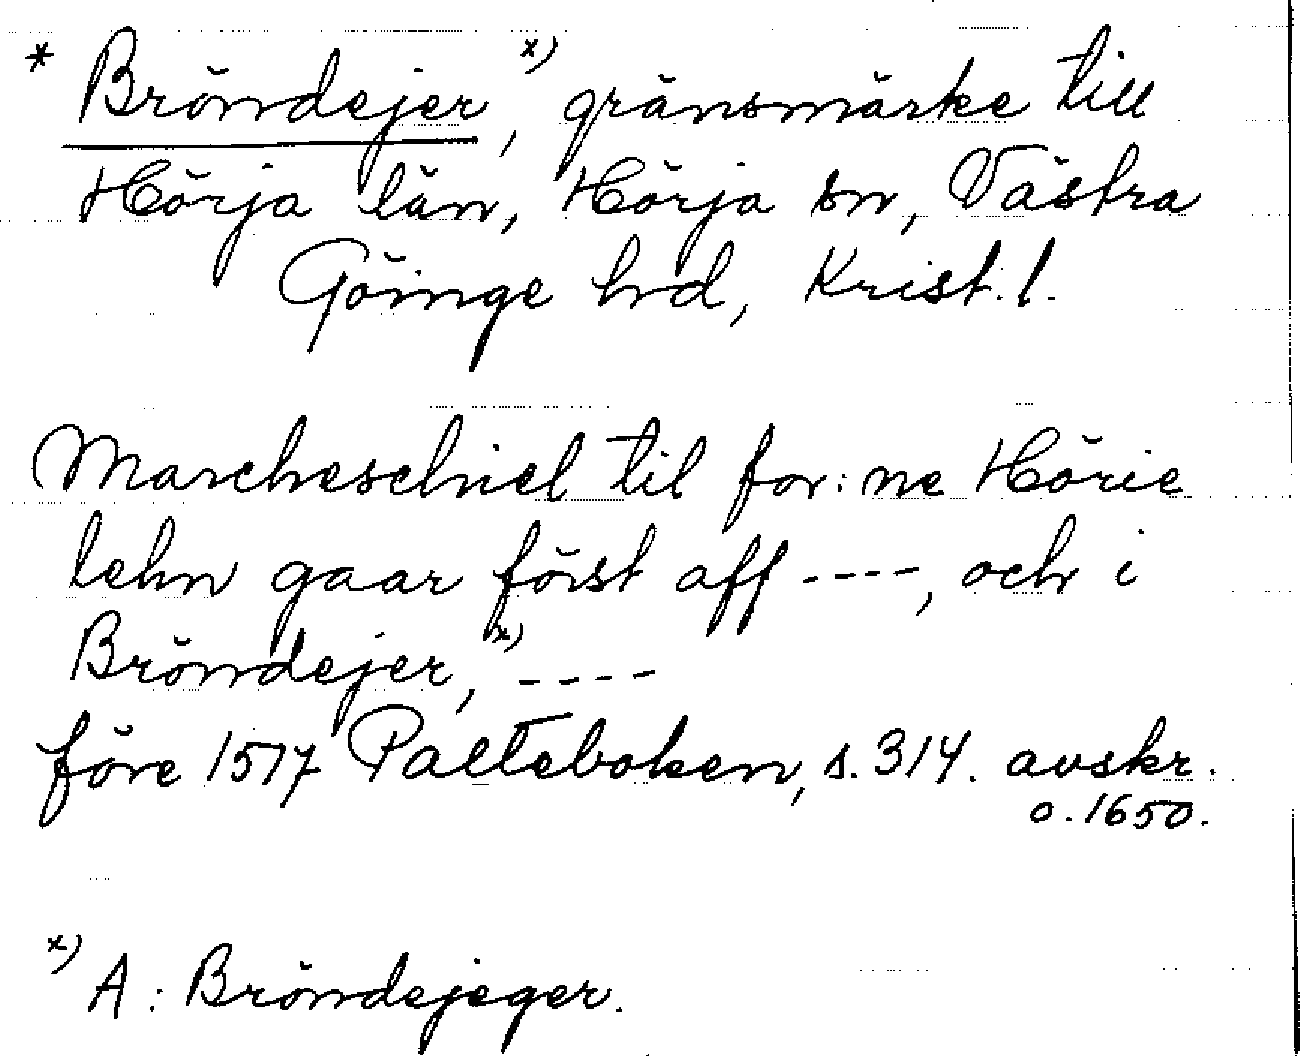 * Bröndejer, x) gränsmärke till
Hörja län, Hörja sn, Västra
Göinge hd, Krist. l.
Marcheschiel til for: ne Hörie
lehn gaar först aff ----, och i
Bröndejer, x) ----
före 1517 Palteboken, s. 314. avskr.
o. 1650.
x) A: Bröndejeger.